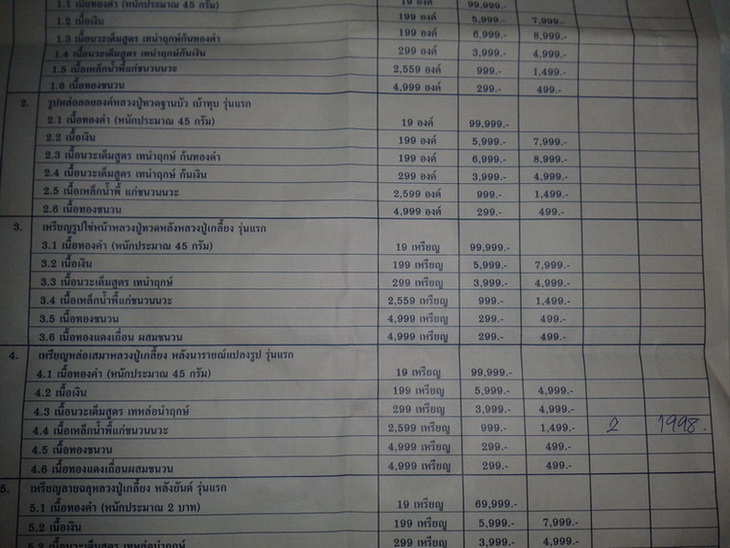 1.1 เนื้อทองคำ (หนักประมาณ 45 กรัม) 19 องค์ 99,999.-
1.2 เนื้อเงิน 199 องค์ 5,999.- 7,999.-
1.3 เนื้อนวะเต็มสูตร เทนำฤกษ์ก้นทองคำ 199 องค์ 6,999.- 8,999.-
1.4 เนื้อนวะเต็มสูตร เทนำฤกษ์ก้นเงิน 299 องค์ 3,999.- 4,999.-
1.5 เนื้อเหล็กน้ำพี้แก่ชนวนนวะ 2,559 องค์ 999.- 1,499.-
1.6 เนื้อทองชนวน 4,999 องค์ 299.- 499.-
2. รูปหล่อลอยองค์หลวงปู่ทวดฐานบัว เบ้าทุบ รุ่นแรก
2.1 เนื้อทองคำ (หนักประมาณ 45 กรัม) 19 องค์ 99,999.-
2.2 เนื้อเงิน 199 องค์ 5,999.- 7,999.-
2.3 เนื้อนวะเต็มสูตร เทนำฤกษ์ ก้นทองคำ 199 องค์ 6,999.- 8,999.-
2.4 เนื้อนวะเต็มสูตร เทนำฤกษ์ ก้นเงิน 299 องค์ 3,999.- 4,999.-
2.5 เนื้อเหล็กน้ำพี้ แก่ชนวนนวะ 2,599 องค์ 999.- 1,499.-
2.6 เนื้อทองชนวน 4,999 องค์ 299.- 499.-
3. เหรียญรูปไข่หน้าหลวงปู่ทวดหลังหลวงปู่เกลี้ยง รุ่นแรก
3.1 เนื้อทองคำ (หนักประมาณ 45 กรัม) 19 เหรียญ 99,999.-
3.2 เนื้อเงิน 199 เหรียญ 5,999.- 7,999.-
3.3 เนื้อนวะเต็มสูตร เทนำฤกษ์ 299 เหรียญ 3,999.- 4,999.-
3.4 เนื้อเหล็กน้ำพี้แก่ชนวนนวะ 2,559 เหรียญ 999.- 1,499.-
3.5 เนื้อทองชนวน 4,999 เหรียญ 299.- 499.-
3.6 เนื้อทองแดงเถื่อน ผสมชนวน 4,999 เหรียญ 299.- 499.-
4. เหรียญหล่อเสมาหลวงปู่เกลี้ยง หลังนารายณ์แปลงรูป รุ่นแรก
4.1 เนื้อทองคำ (หนักประมาณ 45 กรัม) 19 เหรียญ 99,999.-
4.2 เนื้อเงิน 199 เหรียญ 5,999.- 4,999.-
4.3 เนื้อนวะเต็มสูตร เทหล่อนำฤกษ์ 299 เหรียญ 3,999.- 4,999.-
4.4 เนื้อเหล็กน้ำพี้แก่ชนวนนวะ 2,599 เหรียญ 999.- 1,499.- 2 1998.
4.5 เนื้อทองชนวน 4,999 เหรียญ 299.- 499.-
4.6 เนื้อทองแดงเถื่อนผสมชนวน 4,999 เหรียญ 299.- 499.-
5. เหรียญลายฉลุหลวงปู่เกลี้ยง หลังยันต์ รุ่นแรก
5.1 เนื้อทองคำ (หนักประมาณ 2 บาท) 19 เหรียญ 69,999.-
5.2 เนื้อเงิน 199 เหรียญ 5,999.- 7,999.-
5.3 เนื้อนวะเต็มสูตร เทหล่อนำฤกษ์ 299 เหรียญ 3,999.- 4,999.-